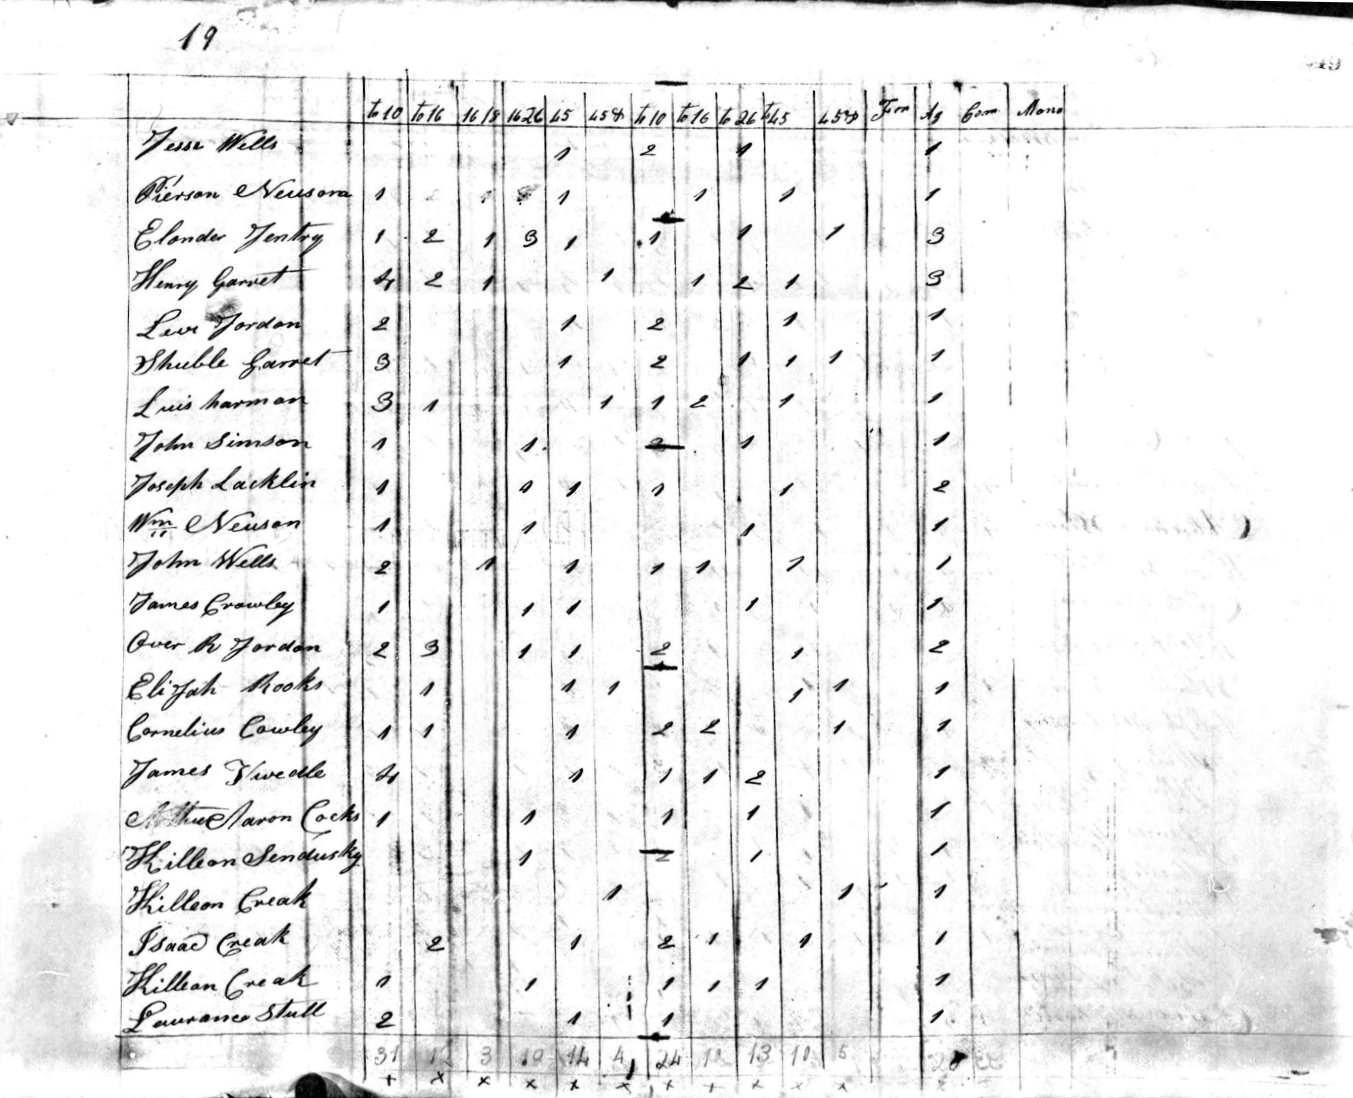 19
to 10 to 16 16 18 16 26 45 45& to 10 to 16 to 26 to 45 45& Forr Ag Com Mano
Jesse Wells 1 2 1 1
Pierson Neusom 1 1 1 1 1 1
Elander Jentry 1 2 1 3 1 1 1 1 3
Henry Garret 4 2 1 1 1 2 1 3
Levi Jordan 2 1 2 1 1
Shuble Garret 3 1 2 1 1 1 1
Luis harman 3 1 1 1 2 1 1
John Simson 1 1 2 1 1
Joseph Lacklin 1 1 1 1 1 2
Wm Neuson 1 1 1 1
John Wells 2 1 1 1 1 1 1
James Crowley 1 1 1 1 1
Over R Jordan 2 3 1 1 2 1 2
Elijah Rooks 1 1 1 1 1 1
Cornelius Cowley 1 1 1 2 2 1 1
James Twedle 4 1 1 1 2 1
Aaron Cocks 1 1 1 1 1
Killeon Sendusky 1 2 1 1
Killeon Creak 1 1 1
Isaac Creak 2 1 2 1 1 1
Killeon Creak 1 1 1 1 1 1
Laurance Stull 2 1 1 1
31 12 3 10 14 4 24 10 13 10 5
x x x x x x x x x x x